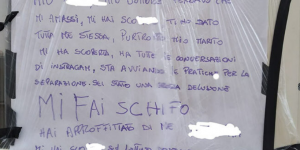 MI AMASSI, MI HAI TI HO DATO
TUTTA ME STESSA, PURTROPPO MIO MARITO
MI HA SCOPERTA, HA TUTTE LE CONVERSAZIONI
DI INSTAGRAM, STA AVVIANDO LE PRATICHE PER LA
SEPARAZIONE. SEI STATO UNA DELUSIONE
MI FAI SCHIFO
HAI APPROFITTATO DI ME
MI HAI